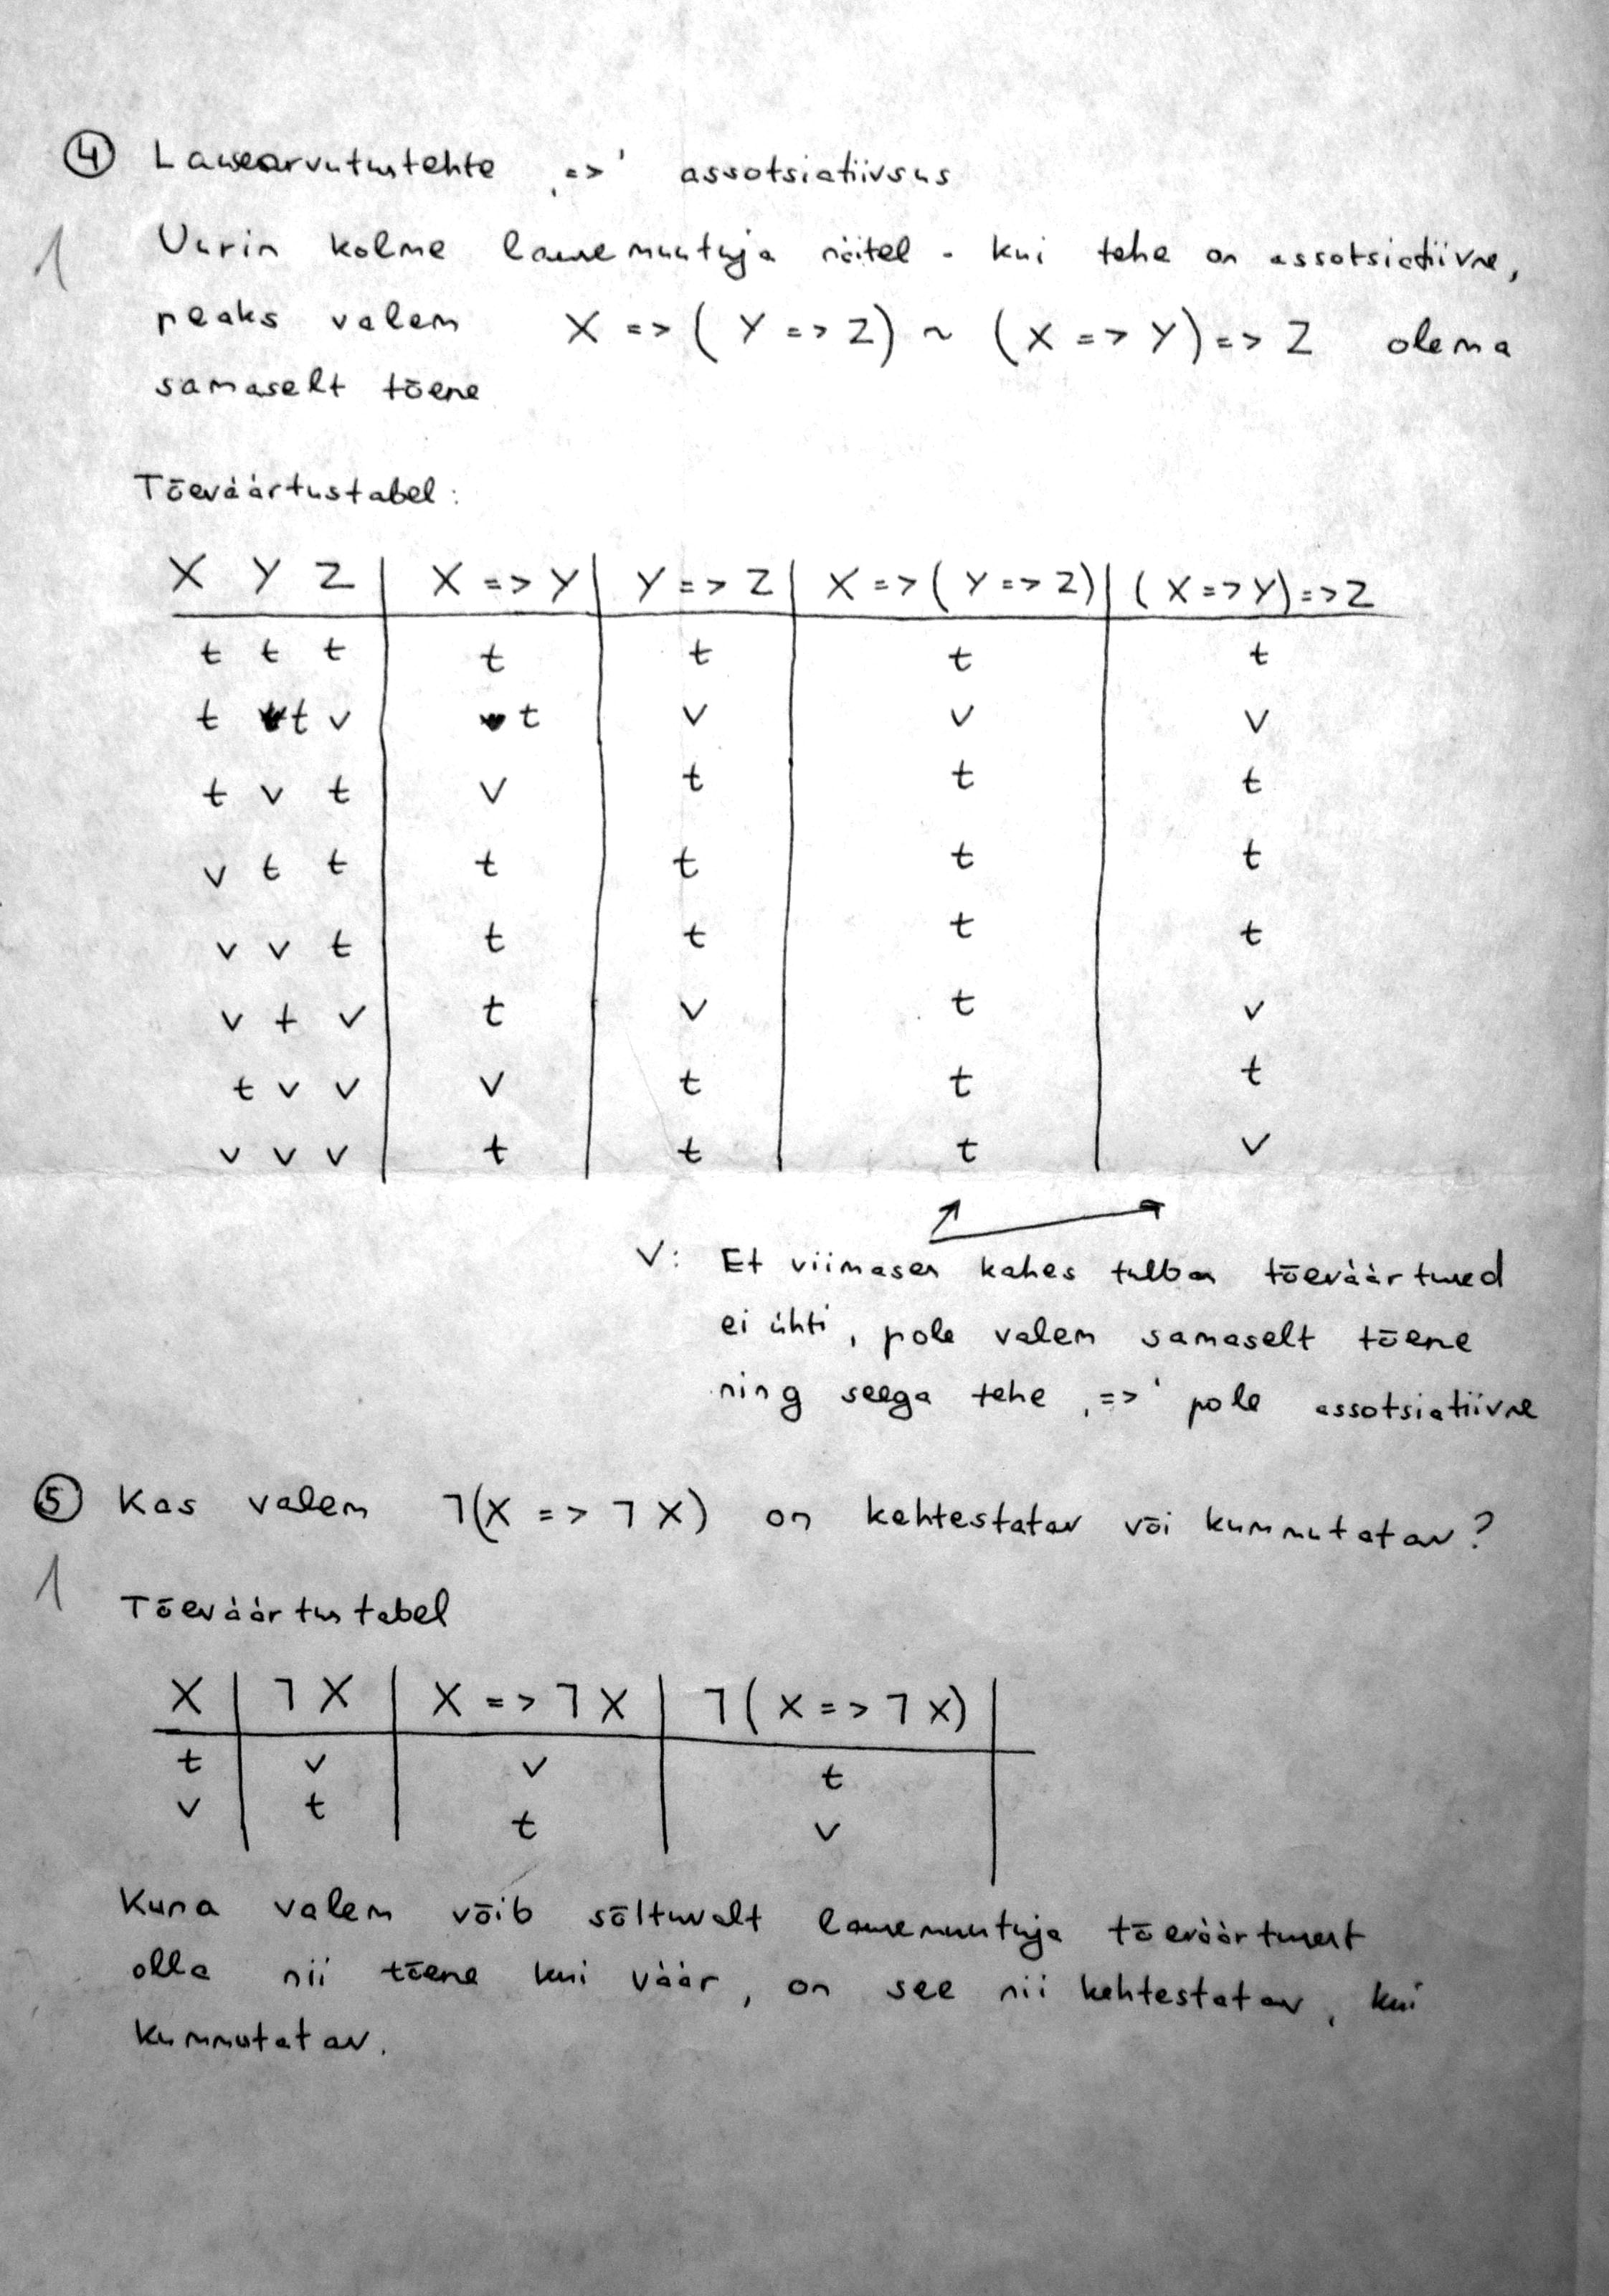 ④ Lausearvutustehte „=>' assotsiatiivsus
1 Uurin kolme lausemuutuja näitel - kui tehe on assotsiatiivne,
peaks valem X => ( Y => Z) ~ (X => Y) => Z olema
samaselt tõene
Tõeväärtustabel:
X Y Z | X => Y | Y => Z | X => ( Y => Z) | ( X => Y) => Z
t t t | t | t | t | t
t t v | t | v | v | v
t v t | v | t | t | t
v t t | t | t | t | t
v v t | t | t | t | t
v t v | t | v | t | v
t v v | v | t | t | t
v v v | t | t | t | v
V: Et viimases kahes tulbas tõeväärtused
ei ühti, pole valem samaselt tõene
ning seega tehe „=>' pole assotsiatiivne
⑤ Kas valem ¬(X => ¬X) on kehtestatav või kummutatav?
1
Tõeväärtustabel
X | ¬X | X => ¬X | ¬( X => ¬X) |
t | v | v | t
v | t | t | v
Kuna valem võib sõltuvalt lausemuutuja tõeväärtusest
olla nii tõene kui väär, on see nii kehtestatav, kui
kummutatav.